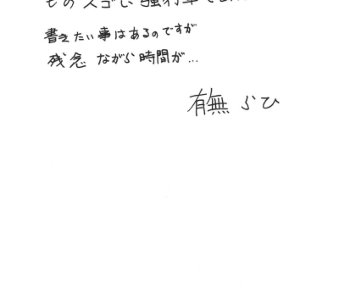 ものスゴい強行軍で
書きたい事はあるのですが
残念 ながら時間が…
有無 らひ